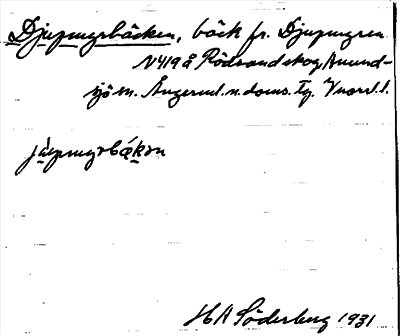 Djupmyrbäcken, bäck fr. Djupmyren
N419 å Rödvandskog, Anund-
sjö sn. Ångerml. n. doms. Tg. Vnorrl. l.
jùpmyrbǽkɐn
HA Söderberg 1931